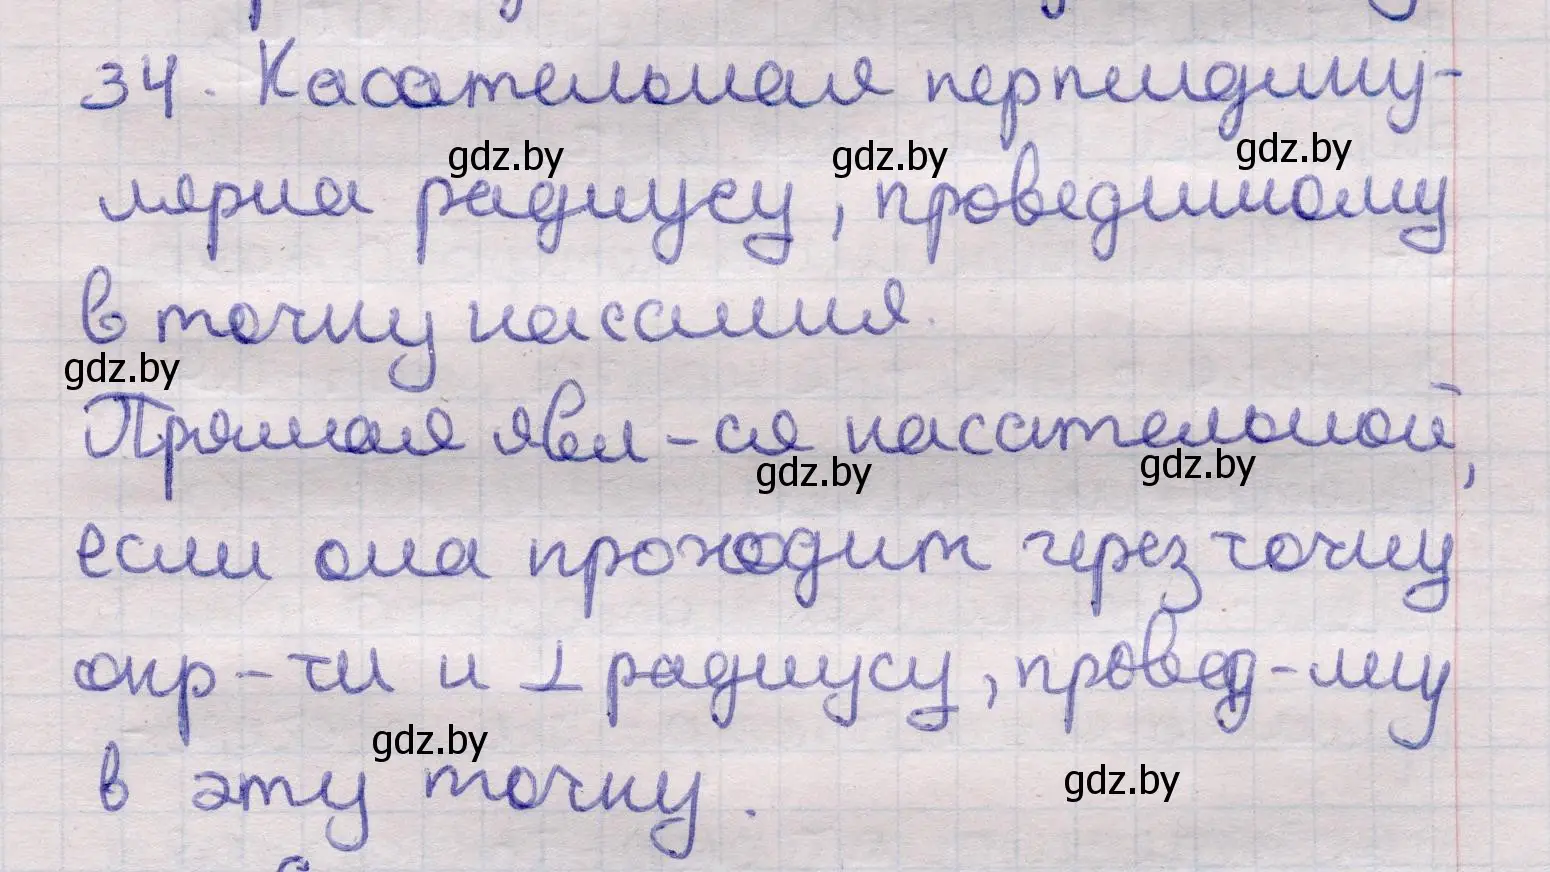 34. Касательная перпендику-
gdz.by gdz.by gdz.by
лярна радиусу, проведенному
в точку касания.
gdz.by
Прямая явл-ся касательной,
gdz.by gdz.by
если она проходит через точку
окр-ти и ⊥ радиусу, провед-му
gdz.by
в эту точку.
gdz.by